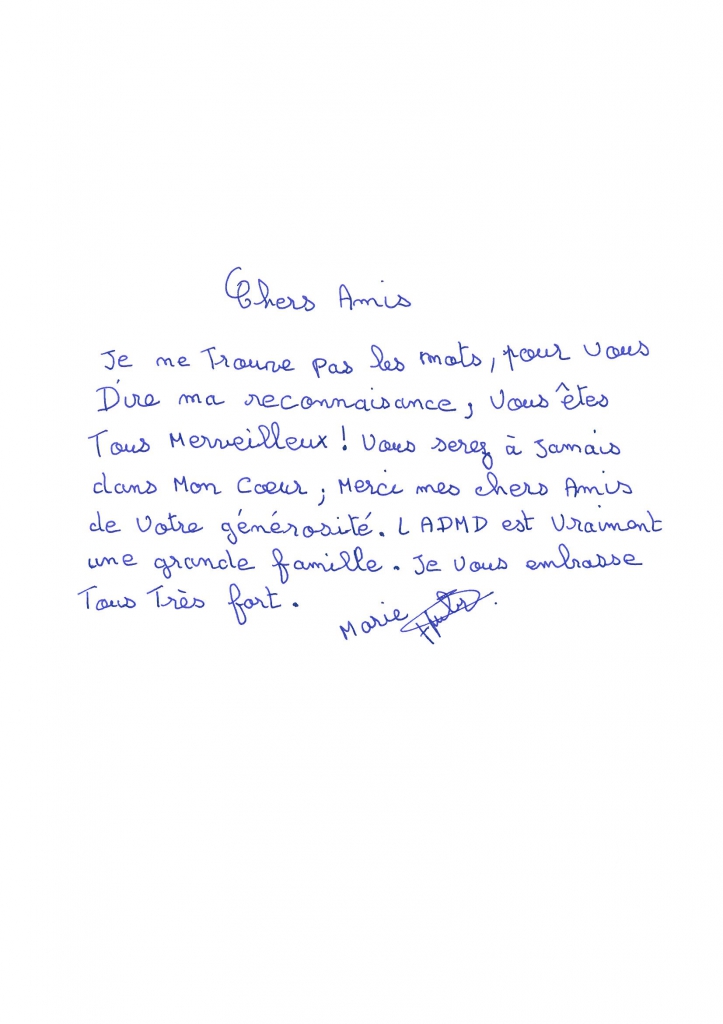 Chers Amis
Je me Trouve pas les mots, pour Vous
Dire ma reconnaisance, Vous êtes
Tous Merveilleux ! Vous serez à Jamais
dans Mon Coeur, Merci mes chers Amis
de Votre générosité. L ADMD est Vraiment
une grande famille. Je Vous embrasse
Tous Très fort.
Marie